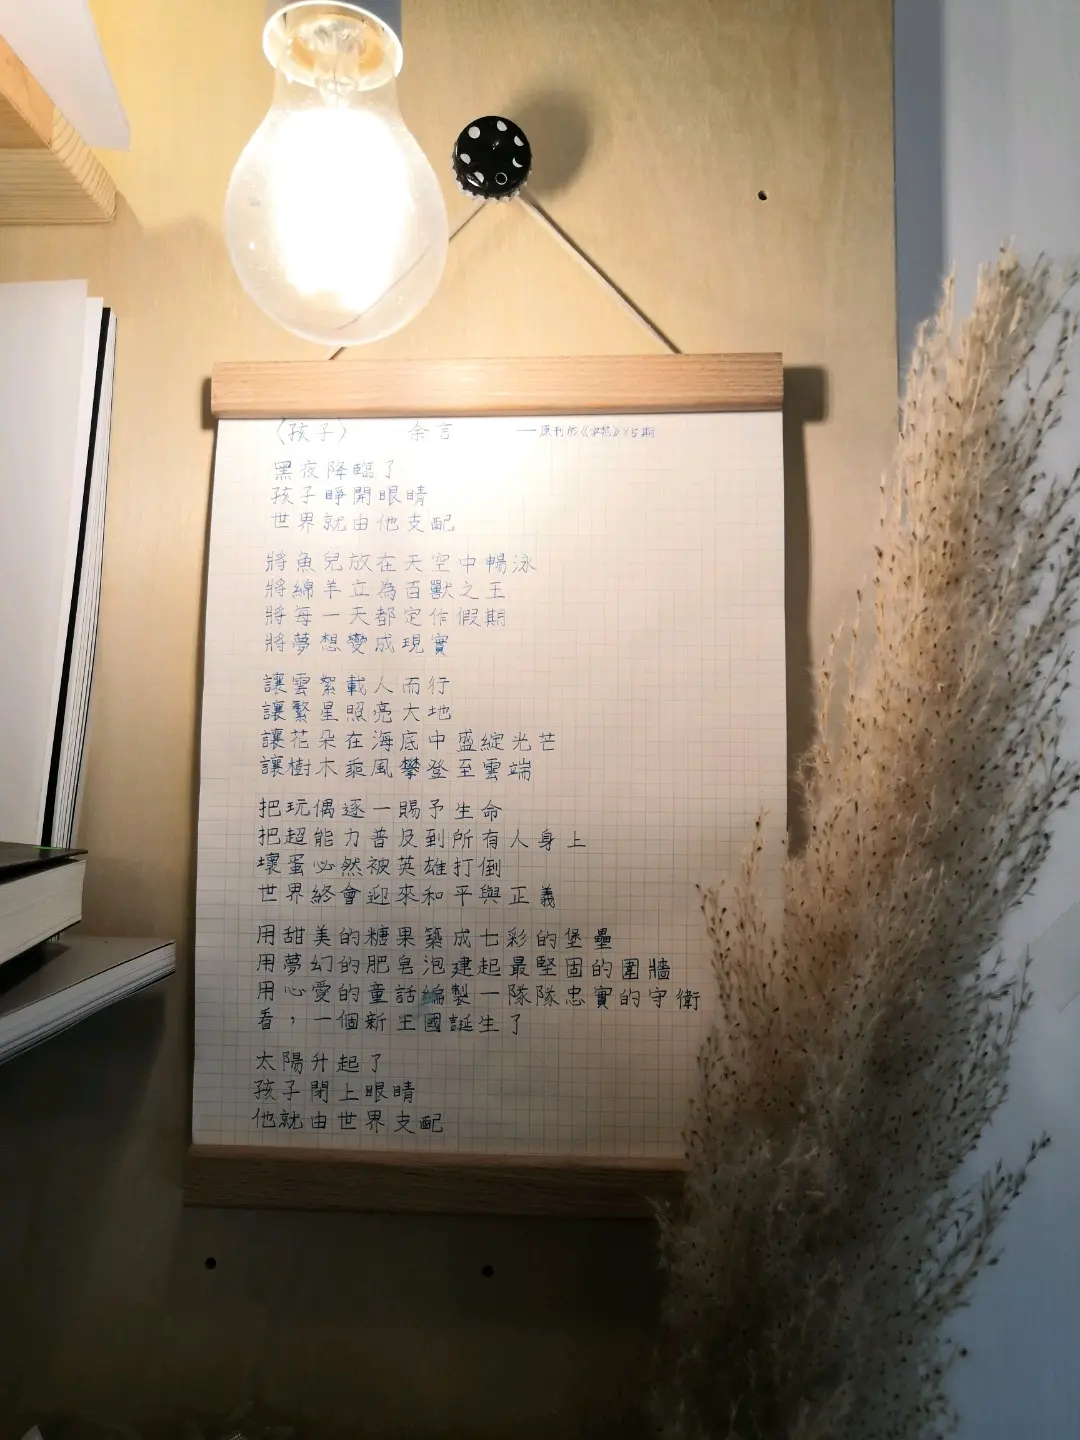 〈孩子〉 余言
黑夜降臨了
孩子睜開眼睛
世界就由他支配
將魚兒放在天空中暢泳
將綿羊立為百獸之王
將每一天都定作假期
將夢想變成現實
讓雲絮載人而行
讓繁星照亮大地
讓花朵在海底中盛綻光芒
讓樹木乘風攀登至雲端
把玩偶逐一賜予生命
把超能力普及到所有人身上
壞蛋必然被英雄打倒
世界終會迎來和平與正義
用甜美的糖果築成七彩的堡壘
用夢幻的肥皂泡建起最堅固的圍牆
用心愛的童話編製一隊隊忠實的守衛
看，一個新王國誕生了
太陽升起了
孩子閉上眼睛
他就由世界支配